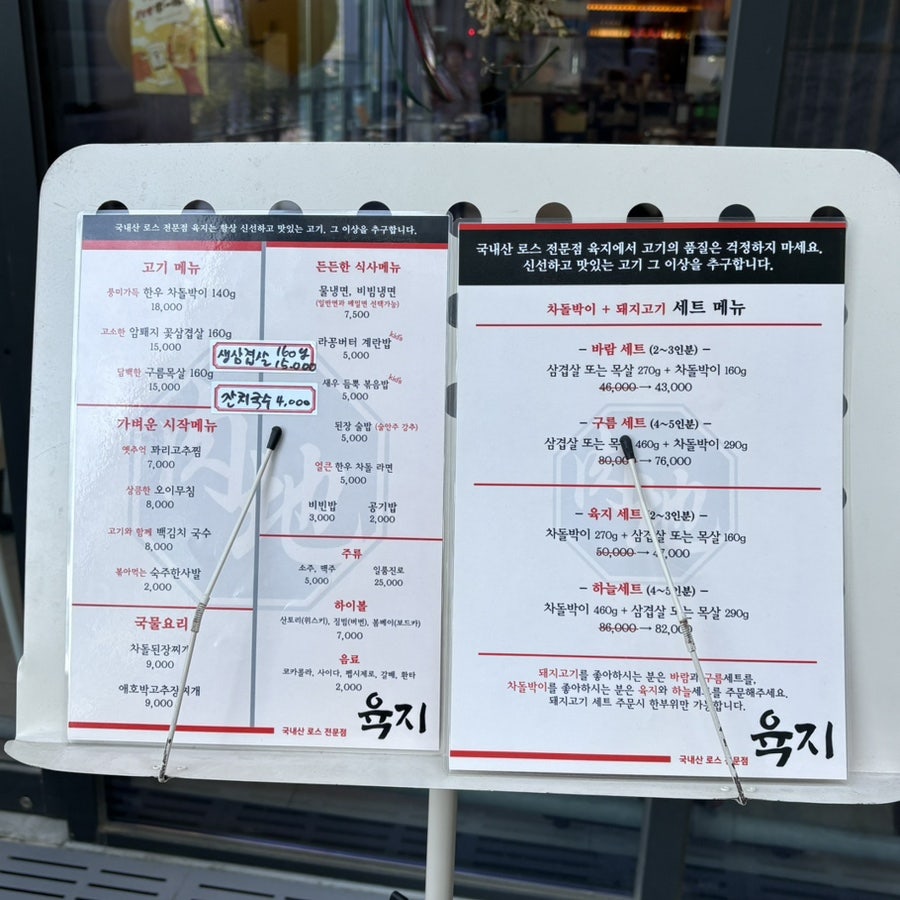 국내산 로스 전문점 육지는 항상 신선하고 맛있는 고기, 그 이상을 추구합니다.
고기 메뉴
풍미가득 한우 차돌박이 140g
18,000
고소한 암퇘지 꽃삼겹살 160g
15,000
담백한 구름목살 160g
15,000
생삼겹살 160g
15.000
잔치국수 4,000
가벼운 시작메뉴
옛추억 꽈리고추찜
7,000
상큼한 오이무침
8,000
고기와 함께 백김치 국수
8,000
볶아먹는 숙주한사발
2,000
국물요리
차돌된장찌개
9,000
애호박고추장찌개
9,000
든든한 식사메뉴
물냉면, 비빔냉면
(일반면과 메밀면 선택가능)
7,500
라꽁버터 계란밥
5,000
새우 듬뿍 볶음밥
5,000
된장 술밥 (술안주 강추)
5,000
얼큰 한우 차돌 라면
5,000
비빔밥 공기밥
3,000 2,000
주류
소주, 맥주 일품진로
5,000 25,000
하이볼
산토리(위스키), 짐빔(버번), 봄베이(보드카)
7,000
음료
코카콜라, 사이다, 펩시제로, 갈배, 환타
2,000
국내산 로스 전문점 육지
국내산 로스 전문점 육지에서 고기의 품질은 걱정하지 마세요.
신선하고 맛있는 고기 그 이상을 추구합니다.
차돌박이 + 돼지고기 세트 메뉴
– 바람 세트 (2~3인분) –
삼겹살 또는 목살 270g + 차돌박이 160g
46,000 → 43,000
– 구름 세트 (4~5인분) –
삼겹살 또는 목살 460g + 차돌박이 290g
80,000 → 76,000
– 육지 세트 (2~3인분) –
차돌박이 270g + 삼겹살 또는 목살 160g
50,000 → 47,000
– 하늘세트 (4~5인분) –
차돌박이 460g + 삼겹살 또는 목살 290g
86,000 → 82,000
돼지고기를 좋아하시는 분은 바람과 구름세트를,
차돌박이를 좋아하시는 분은 육지와 하늘세트를 주문해주세요.
돼지고기 세트 주문시 한부위만 가능합니다.
국내산 로스 전문점 육지